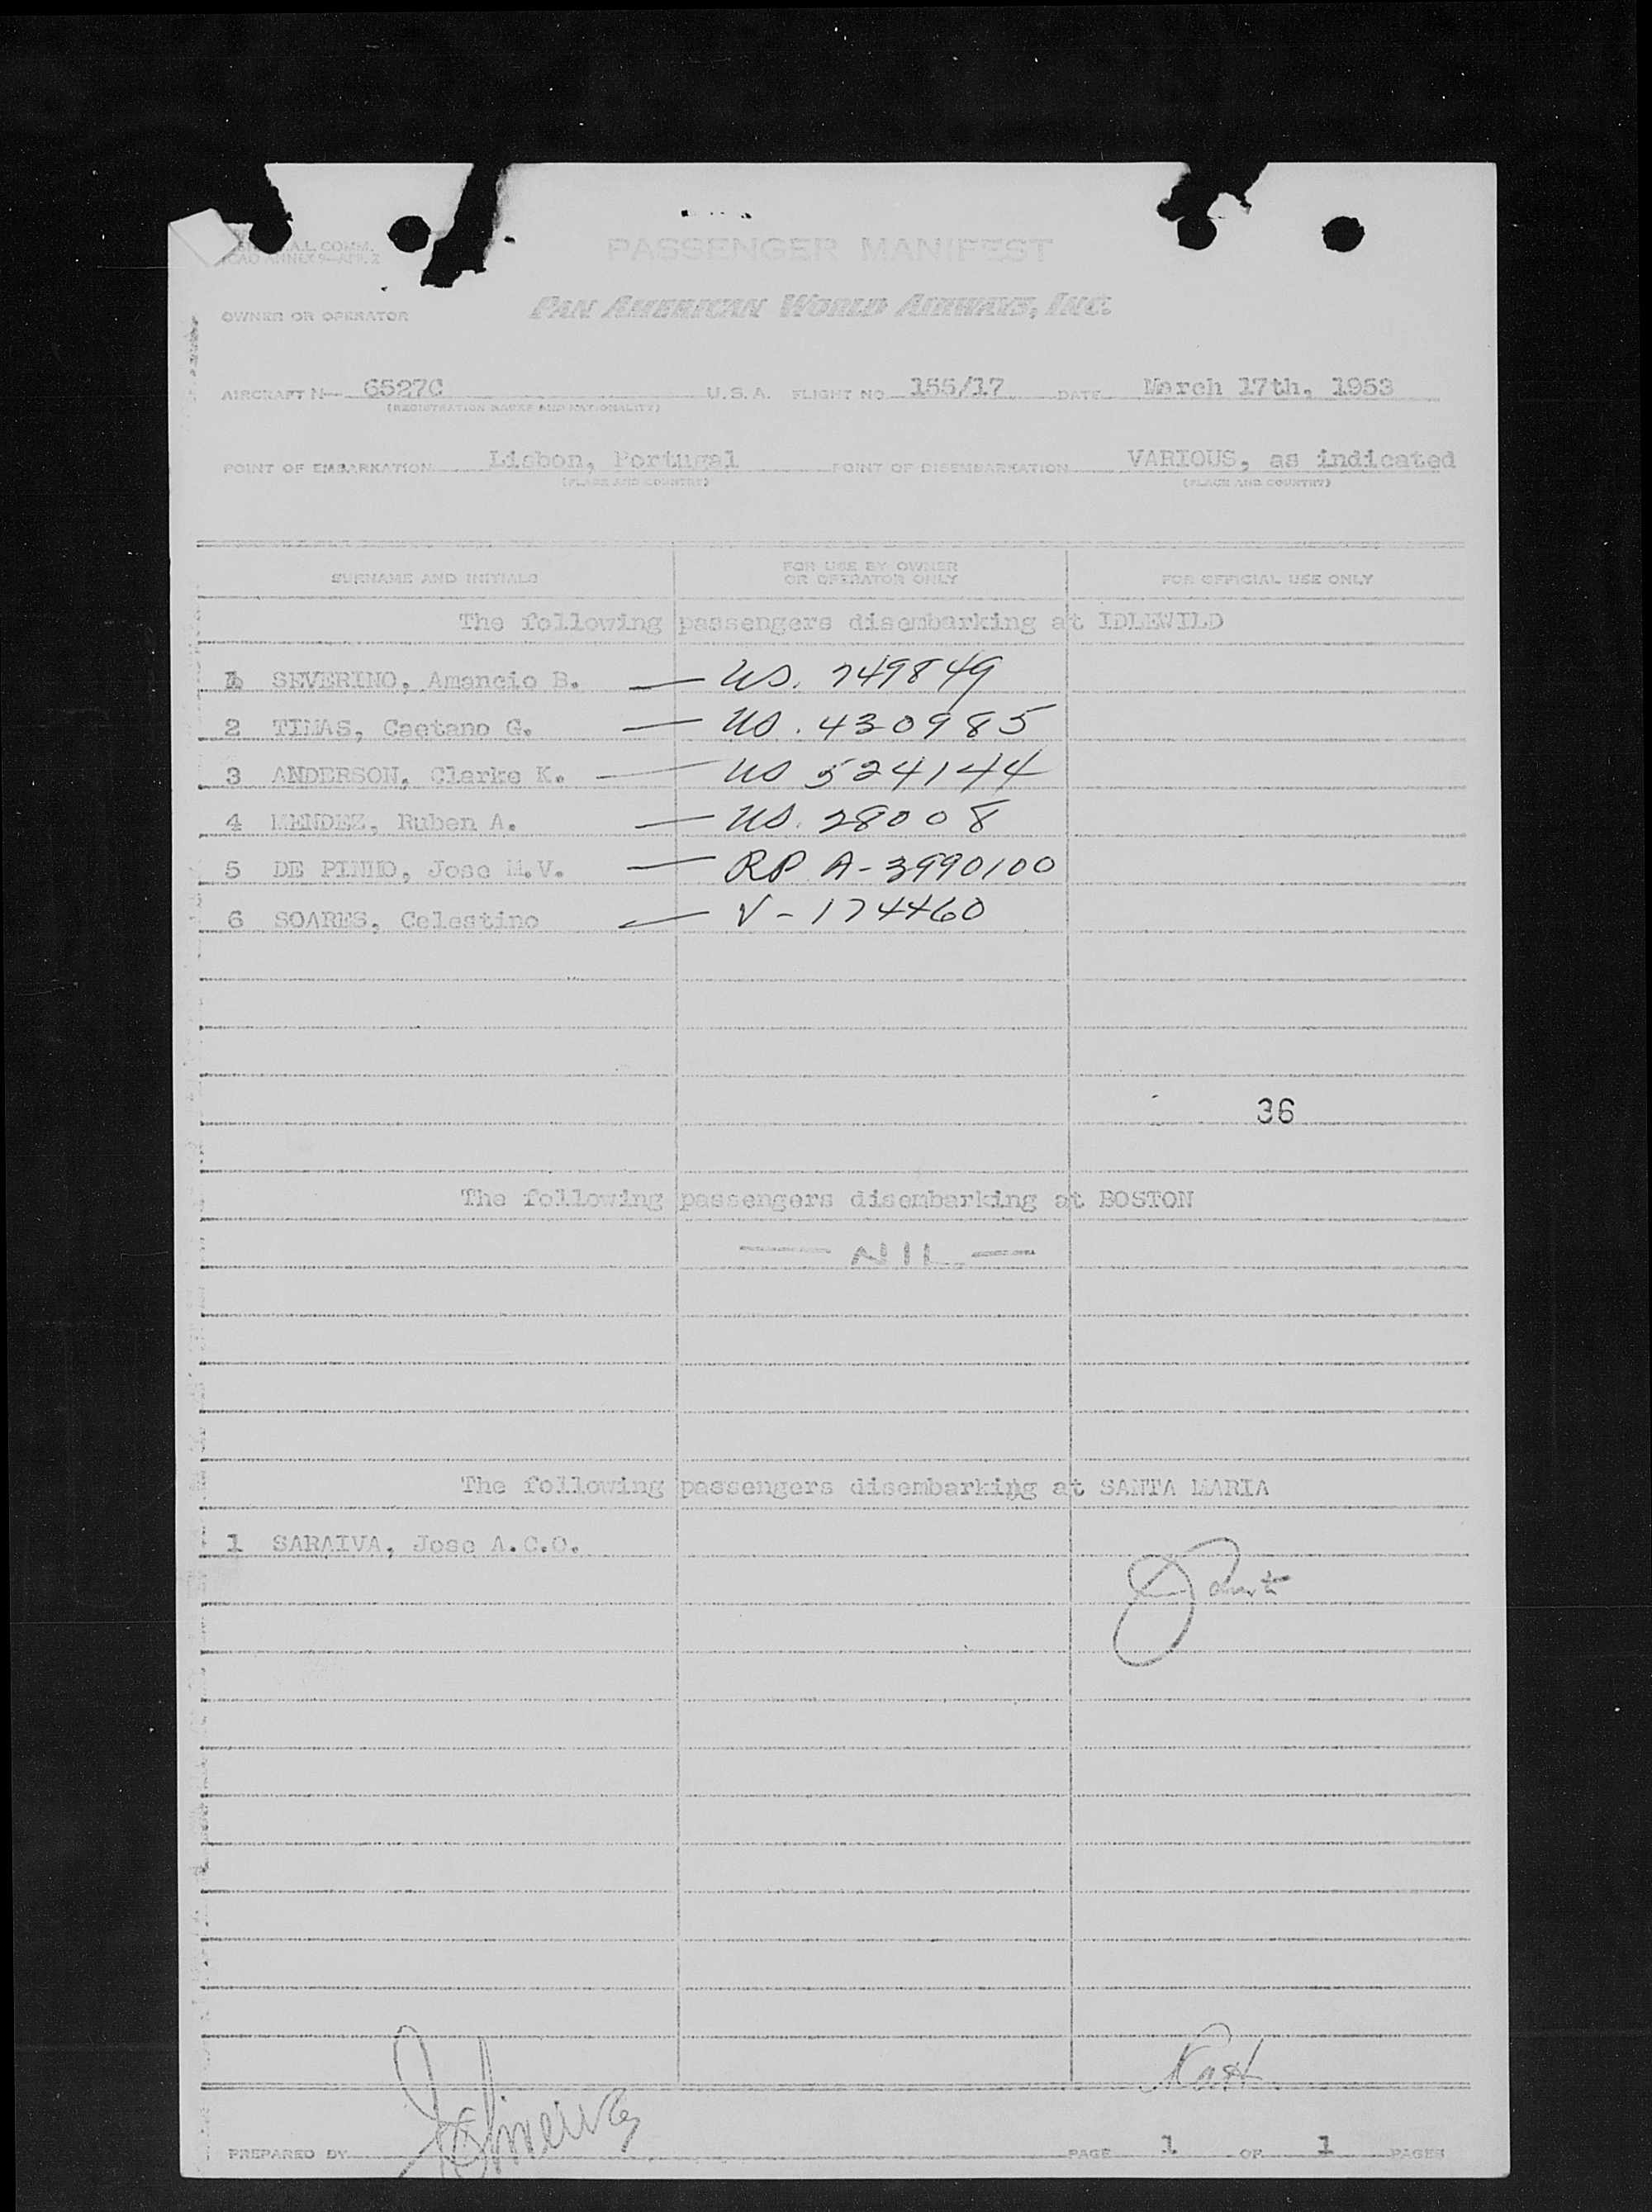 A.L. COMM.
ICAO ANNEX 9—APP. 2
PASSENGER MANIFEST
OWNER OR OPERATOR PAN AMERICAN WORLD AIRWAYS, INC.
AIRCRAFT N— 6527C U.S.A. FLIGHT NO. 155/17 DATE March 17th, 1953
(REGISTRATION MARKS AND NATIONALITY)
POINT OF EMBARKATION Lisbon, Portugal POINT OF DISEMBARKATION VARIOUS, as indicated
(PLACE AND COUNTRY) (PLACE AND COUNTRY)
SURNAME AND INITIALS FOR USE BY OWNER OR OPERATOR ONLY FOR OFFICIAL USE ONLY
The following passengers disembarking at IDLEWILD
1 SEVERINO, Amancio B. — US. 749849
2 TIMAS, Caetano G. — US. 430985
3 ANDERSON, Clarke K. — US 524144
4 MENDEZ, Ruben A. — US. 28008
5 DE PINHO, Jose M.V. — RP A-3990100
6 SOARES, Celestino — V-174460
36
The following passengers disembarking at BOSTON
— NIL. —
The following passengers disembarking at SANTA MARIA
1 SARAIVA, Jose A.C.O.
PREPARED BY PAGE 1 OF 1 PAGES